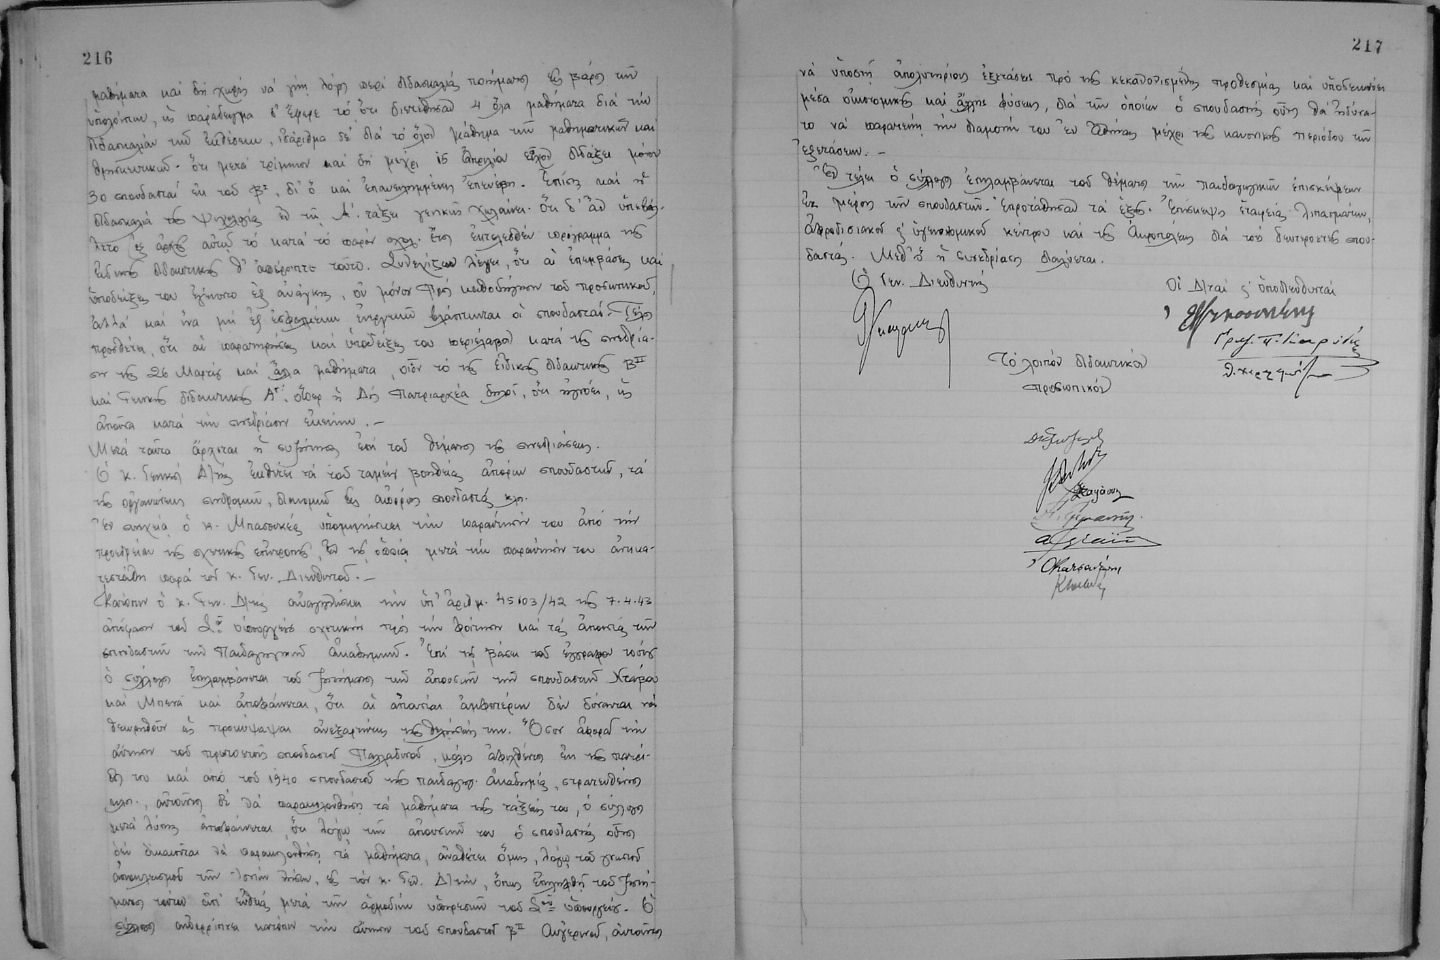 216
μαθήματα καὶ δὴ χωρὶς νὰ γίνῃ λόγος περὶ διδασκαλίας ποιήματος εἰς βάρος τῶν
ὑπολοίπων, ὡς παράδειγμα δ' ἔφερε τὸ ὅτι διετέθησαν 4 ὅλα μαθήματα διὰ τὴν
διδασκαλίαν τῶν ἐκθέσεων, ἰσάριθμα δὲ διὰ τὸ ὅλον μάθημα τῶν μαθηματικῶν καὶ
θρησκευτικῶν. ὅτι μετὰ τρίμηνον καὶ δὴ μέχρι 15 Ἀπριλίου εἶχον διδάξει μόνον
30 σπουδασταὶ ἐκ τοῦ Β', δι' ὃ καὶ ἐπανειλημμένως ἐπενέβη. Ἐπίσης καὶ ἡ
διδασκαλία τῆς ψυχολογίας ἐν τῇ Α' τάξει γενικῶς χωλαίνει. Ὅτι δ' ἂν ὑπεβάλ-
λετο ἐξ ἀρχῆς αὐτῷ τὸ κατὰ τὸ παρὸν σχολ. ἔτος ἐκτελεσθὲν πρόγραμμα τῆς
Εἰδικῆς διδακτικῆς θ' ἀπέρριπτε τοῦτο. Συνεχίζων λέγει, ὅτι αἱ ἐπεμβάσεις καὶ
ὑποδείξεις του ἐγένοντο ἐξ ἀνάγκης, οὐ μόνον πρὸς καθοδήγησιν τοῦ προσωπικοῦ,
ἀλλὰ καὶ ἵνα μὴ ἐξ ἐσφαλμένων ἐνεργειῶν βλάπτωνται οἱ σπουδασταί. Τέλος
προσθέτει, ὅτι αἱ παρατηρήσεις καὶ ὑποδείξεις του περιέλαβον κατὰ τὴν συνεδρία-
σιν τῆς 26 Μαρτίου καὶ ἄλλα μαθήματα, οἷον τὸ τῆς εἰδικῆς διδακτικῆς Β
καὶ Γενικῆς διδακτικῆς Α', ὅπερ ἡ Δὶς Πατριαρχέα δηλοῖ, ὅτι ἠγνόει, ὡς
ἀποῦσα κατὰ τὴν συνεδρίασιν ἐκείνην. —
Μετὰ ταῦτα ἄρχεται ἡ συζήτησις ἐπὶ τοῦ θέματος τῆς συνεδριάσεως.
Ὁ κ. Γενικὸς Δ/τὴς ἐκθέτει τὰ τοῦ ταμείου βοηθείας ἀπόρων σπουδαστῶν, τὰ
τῆς ὀργανώσεως συνδρομῶν, διανομῶν εἰς ἀπόρους σπουδαστὰς κλπ.
Ἐν συνεχείᾳ ὁ κ. Μπασουκέας ὑπομιμνήσκει τὴν παραίτησίν του ἀπὸ τὴν
προεδρίαν τῆς σχετικῆς ἐπιτροπῆς, ἐν τῆς ὁποίας μετὰ τὴν παραίτησίν του ἀντικα-
τεστάθη παρὰ τοῦ κ. Γεν. Διευθυντοῦ. —
Κατόπιν ὁ κ. Γεν. Δ/τὴς ἀναγιγνώσκει τὴν ὑπ' ἀριθμ. 45103/42 τῆς 7.4.43
ἀπόφασιν τοῦ Σοῦ ὑπουργείου σχετικὴν πρὸς τὴν φοίτησιν καὶ τὰς ἀπουσίας τῶν
σπουδαστῶν τῶν Παιδαγωγικῶν Ἀκαδημιῶν. Ἐπὶ τῇ βάσει τοῦ ἐγγράφου τούτου
ὁ σύλλογος ἐπιλαμβάνεται τοῦ ζητήματος τῶν ἀπουσιῶν τῶν σπουδαστῶν Νταβοῦ
καὶ Μπενᾶ καὶ ἀποφαίνεται, ὅτι αἱ ἀπουσίαι ἀμφοτέρων δὲν δύνανται νὰ
θεωρηθοῦν ὡς προκύψασαι ἀνεξαρτήτως τῆς θελήσεώς των. Ὅσον ἀφορᾷ τὴν
αἴτησιν τοῦ πρωτοετοῦς σπουδαστοῦ Παλλαδινοῦ, μόλις ἀφιχθέντος ἐκ τῆς πατρί-
δος του καὶ ἀπὸ τοῦ 1940 σπουδαστοῦ τῆς παιδαγωγ. ἀκαδημίας, στρατευθέντος
κλπ., αἰτοῦντος δὲ νὰ παρακολουθήσῃ τὰ μαθήματα τῆς τάξεώς του, ὁ σύλλογος
μετὰ λύπης ἀποφαίνεται, ὅτι λόγῳ τῶν ἀπουσιῶν του ὁ σπουδαστὴς οὗτος
δὲν δικαιοῦται νὰ παρακολουθήσῃ τὰ μαθήματα, ἀναθέτει ὅμως, λόγῳ τοῦ γενικοῦ
ἀποκλεισμοῦ τῶν Ἰονίων νήσων, εἰς τὸν κ. Γεν. Δ/τήν, ὅπως ἐπιληφθῇ τοῦ ζητή-
ματος τούτου ἀπ' εὐθείας μετὰ τῶν ἁρμοδίων ὑπηρεσιῶν τοῦ Σοῦ ὑπουργείου. Ὁ
σύλλογος ἀπορρίπτει κατόπιν τὴν αἴτησιν τοῦ σπουδαστοῦ Β Αὐγερινοῦ, αἰτοῦντος
217
νὰ ὑποστῇ ἀπολυτηρίους ἐξετάσεις πρὸ τῆς κεκανονισμένης προθεσμίας καὶ ὑποδεικνύει
μέσα οἰκονομικῆς καὶ ἄλλης φύσεως, διὰ τῶν ὁποίων ὁ σπουδαστὴς οὗτος θὰ ἠδύνα-
το νὰ παρατείνῃ τὴν διαμονήν του ἐν Ἀθήναις μέχρι τῆς κανονικῆς περιόδου τῶν
ἐξετάσεων. —
Ἐν τέλει ὁ σύλλογος ἐπιλαμβάνεται τοῦ θέματος τῶν παιδαγωγικῶν ἐπισκέψεων
ἐκ μέρους τῶν σπουδαστῶν. Ἐπροτάθησαν τὰ ἑξῆς. Ἐπίσκεψις ἑταιρείας λιπασμάτων,
ἀφροδισιακοῦ & ὑγειονομικοῦ κέντρου καὶ τῆς Ἀκροπόλεως διὰ τοὺς δευτεροετεῖς σπου-
δαστάς. Μεθ' ὃ ἡ συνεδρίασις διαλύεται.
Ὁ Γεν. Διευθυντὴς
Οἱ Δ/νταὶ & ὑποδιευθυνταὶ
Τὸ λοιπὸν διδακτικὸν
προσωπικόν